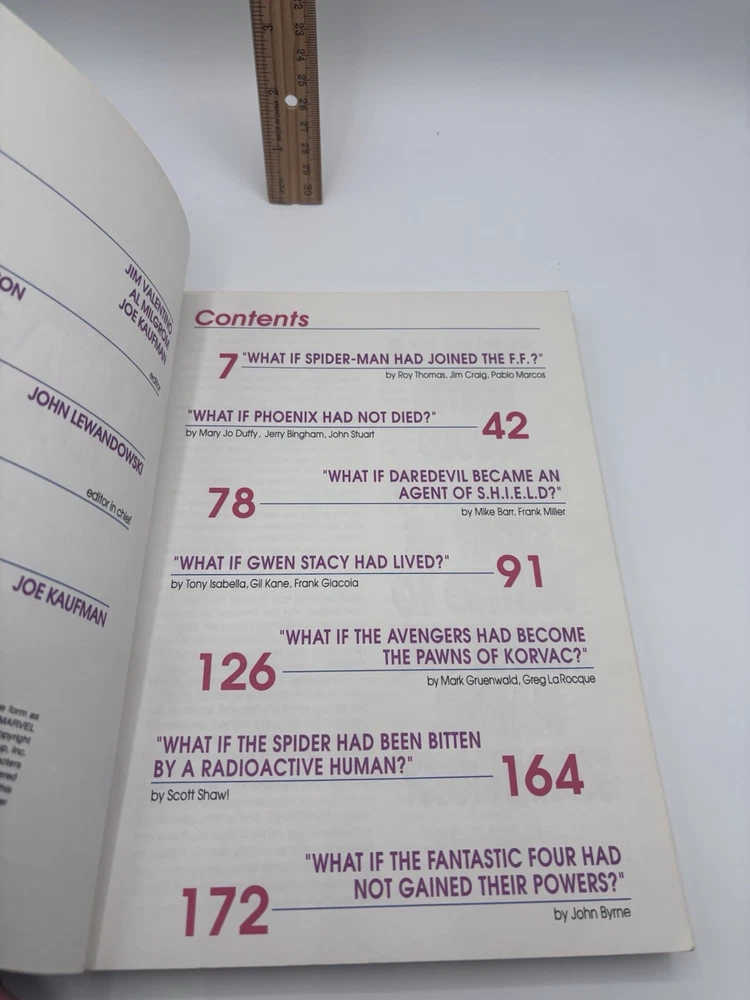 JIM VALENTINO
AL MILGROM
JOE KAUFMAN
ON
editor
JOHN LEWANDOWSKI
editor in chief
JOE KAUFMAN
form as
MARVEL
Inc.
Contents
7 "WHAT IF SPIDER-MAN HAD JOINED THE F.F.?"
by Roy Thomas, Jim Craig, Pablo Marcos
"WHAT IF PHOENIX HAD NOT DIED?"
by Mary Jo Duffy, Jerry Bingham, John Stuart
42
"WHAT IF DAREDEVIL BECAME AN
AGENT OF S.H.I.E.L.D?"
78
by Mike Barr, Frank Miller
"WHAT IF GWEN STACY HAD LIVED?"
91
by Tony Isabella, Gil Kane, Frank Giacoia
"WHAT IF THE AVENGERS HAD BECOME
THE PAWNS OF KORVAC?"
126
by Mark Gruenwald, Greg LaRocque
"WHAT IF THE SPIDER HAD BEEN BITTEN
BY A RADIOACTIVE HUMAN?"
164
by Scott Shaw!
"WHAT IF THE FANTASTIC FOUR HAD
NOT GAINED THEIR POWERS?"
172
by John Byrne
3
2
1
22
23
24
25
26
27
28
29
30